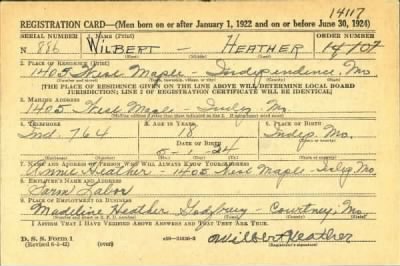 14117
REGISTRATION CARD—(Men born on or after January 1, 1922 and on or before June 30, 1924)
SERIAL NUMBER 1. NAME (Print) ORDER NUMBER
N 886 WILBERT - HEATHER 14107
2. PLACE OF RESIDENCE (Print)
1405 West Maple - Independence, Mo
[THE PLACE OF RESIDENCE GIVEN ON THE LINE ABOVE WILL DETERMINE LOCAL BOARD JURISDICTION; LINE 2 OF REGISTRATION CERTIFICATE WILL BE IDENTICAL]
3. MAILING ADDRESS
1405 West Maple - Mo.
4. TELEPHONE 5. AGE IN YEARS 6. PLACE OF BIRTH
Ind. 764 18 Indep. Mo.
DATE OF BIRTH
5-1-24
7. NAME AND ADDRESS OF PERSON WHO WILL ALWAYS KNOW YOUR ADDRESS
Annie Heather - 1405 West Maple - Mo.
8. EMPLOYER'S NAME AND ADDRESS
Farm Labor
9. PLACE OF EMPLOYMENT OR BUSINESS
Madeline Heather - Courtney, Mo.
I AFFIRM THAT I HAVE VERIFIED ABOVE ANSWERS AND THAT THEY ARE TRUE.
D. S. S. Form 1
Wilbert Heather